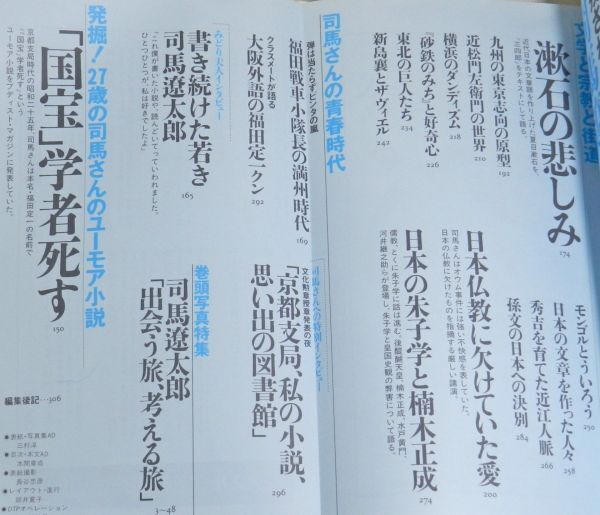 文学と宗教と街道
漱石の悲しみ
174
近代日本の文章語を作り上げた夏目漱石を、
「三四郎」をテキストにして語る。
九州の東京志向の原型
192
近松門左衛門の世界
210
横浜のダンディズム
218
『砂鉄のみち』と好奇心
226
東北の巨人たち
234
新島襄とザヴィエル
242
モンゴルとういろう
250
日本の文章を作った人々
258
秀吉を育てた近江人脈
266
孫文の日本への決別
284
日本仏教に欠けていた愛
200
司馬さんはオウム事件には強い不快感を表していた。
日本の仏教に欠けたものを指摘する厳しい講演。
日本の朱子学と楠木正成
274
儒教、とくに朱子学に話は進む。後醍醐天皇、楠木正成、水戸黄門、
河井継之助らが登場し、朱子学と皇国史観の弊害について語る。
司馬さんの青春時代
弾は当たらず、ビンタの嵐
福田戦車小隊長の満州時代
169
クラスメートが語る
大阪外語の福田定一クン
292
みどり夫人インタビュー
書き続けた若き
司馬遼太郎
165
「これ僕が書いた小説や、読んどいてっていわれました。
ひとつひとつが、私は好きでしたよ」
司馬さんへの特別インタビュー
文化勲章受章発表の夜
「京都支局、私の小説、
思い出の図書館」
296
巻頭写真特集
司馬遼太郎
「出会う旅、考える旅」
3〜48
発掘! 27歳の司馬さんのユーモア小説
「国宝」学者死す
150
京都支局時代の昭和二十五年、司馬さんは本名・福田定一の名前で
「『国宝』学者死す」という
ユーモア小説をブディスト・マガジンに発表していた。
編集後記…306
●表紙・写真集AD
三村淳
●目次・本文AD
●表紙撮影
長谷忠彦
●レイアウト・進行
●DTPオペレーション